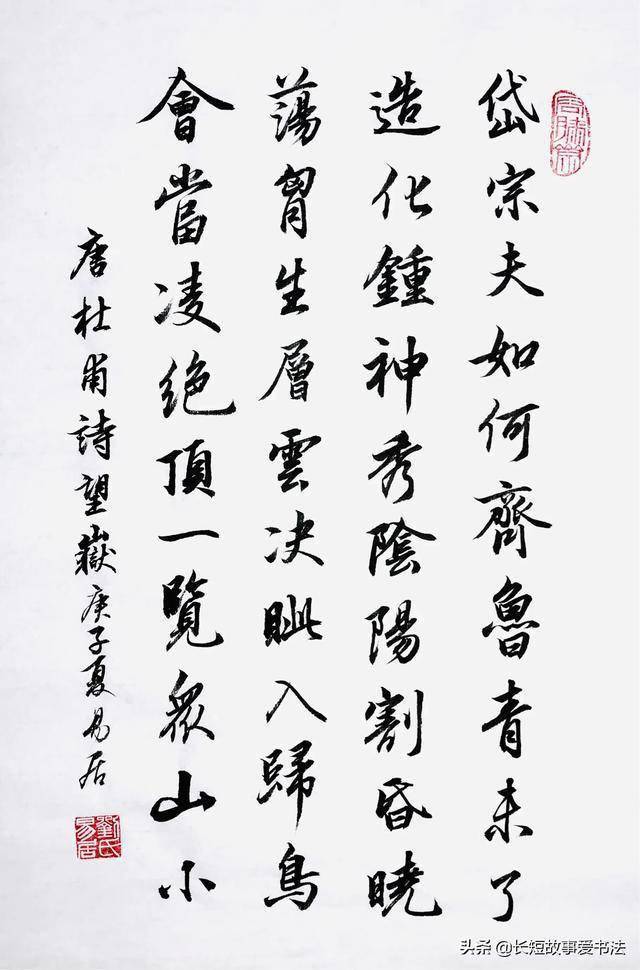 岱宗夫如何齊魯青未了
造化鍾神秀陰陽割昏曉
蕩胷生層雲决眦入歸鳥
會當凌绝頂一覽衆山小
唐杜甫詩望嶽庚子夏易居
劉氏易居
头条 @长短故事爱书法